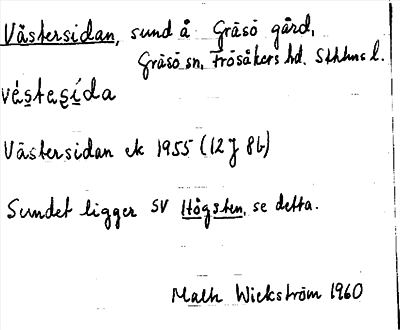 Västersidan, sund å Gräsö gård,
Gräsö sn, Frösåkers hd. Sthlms l.
vèstesída
Västersidan ek 1955 (12J 8b)
Sundet ligger SV Högsten, se detta.
Math Wickström 1960